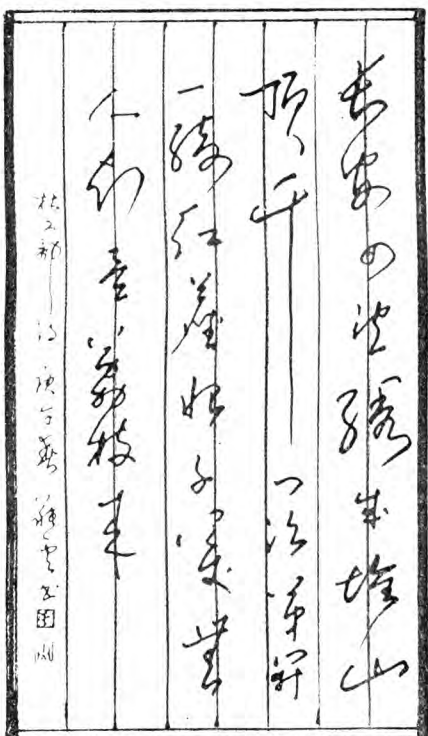 長安回望繡成堆山
頂千門次第開
一騎紅塵妃子笑無
人知是荔枝來
杜